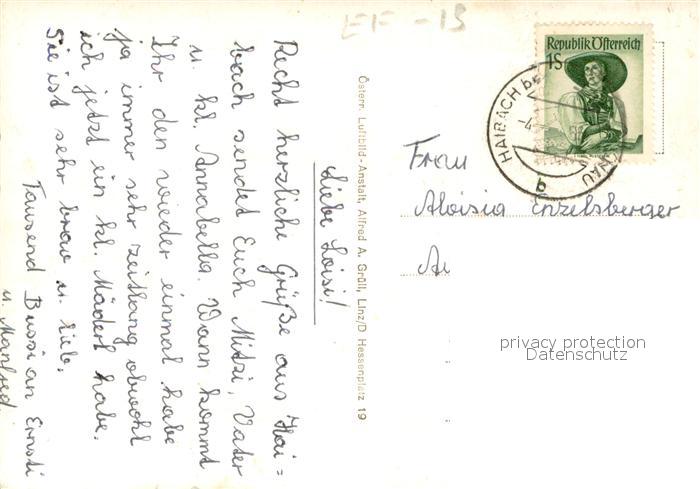 EF-1S
Liebe Loisi!
Recht herzliche Grüße aus Hai=
bach sendet Euch Mitzi, Vater
u. kl. Annabella. Wann kommt
Ihr den wieder einmal. habe
ja immer sehr zeitlang obwohl
ich jetzt ein kl. Mäderl habe.
Sie ist sehr brav u. lieb.
Tausend Bussi an Ernsti
u. Manfred.
Österr. Luftbild-Anstalt, Alfred A. Grüll, Linz/D Hessenplatz 19
Republik Österreich
1S
HAIBACH b.
NAU
b
Frau
Aloisia Enzelsberger
privacy protection
Datenschutz